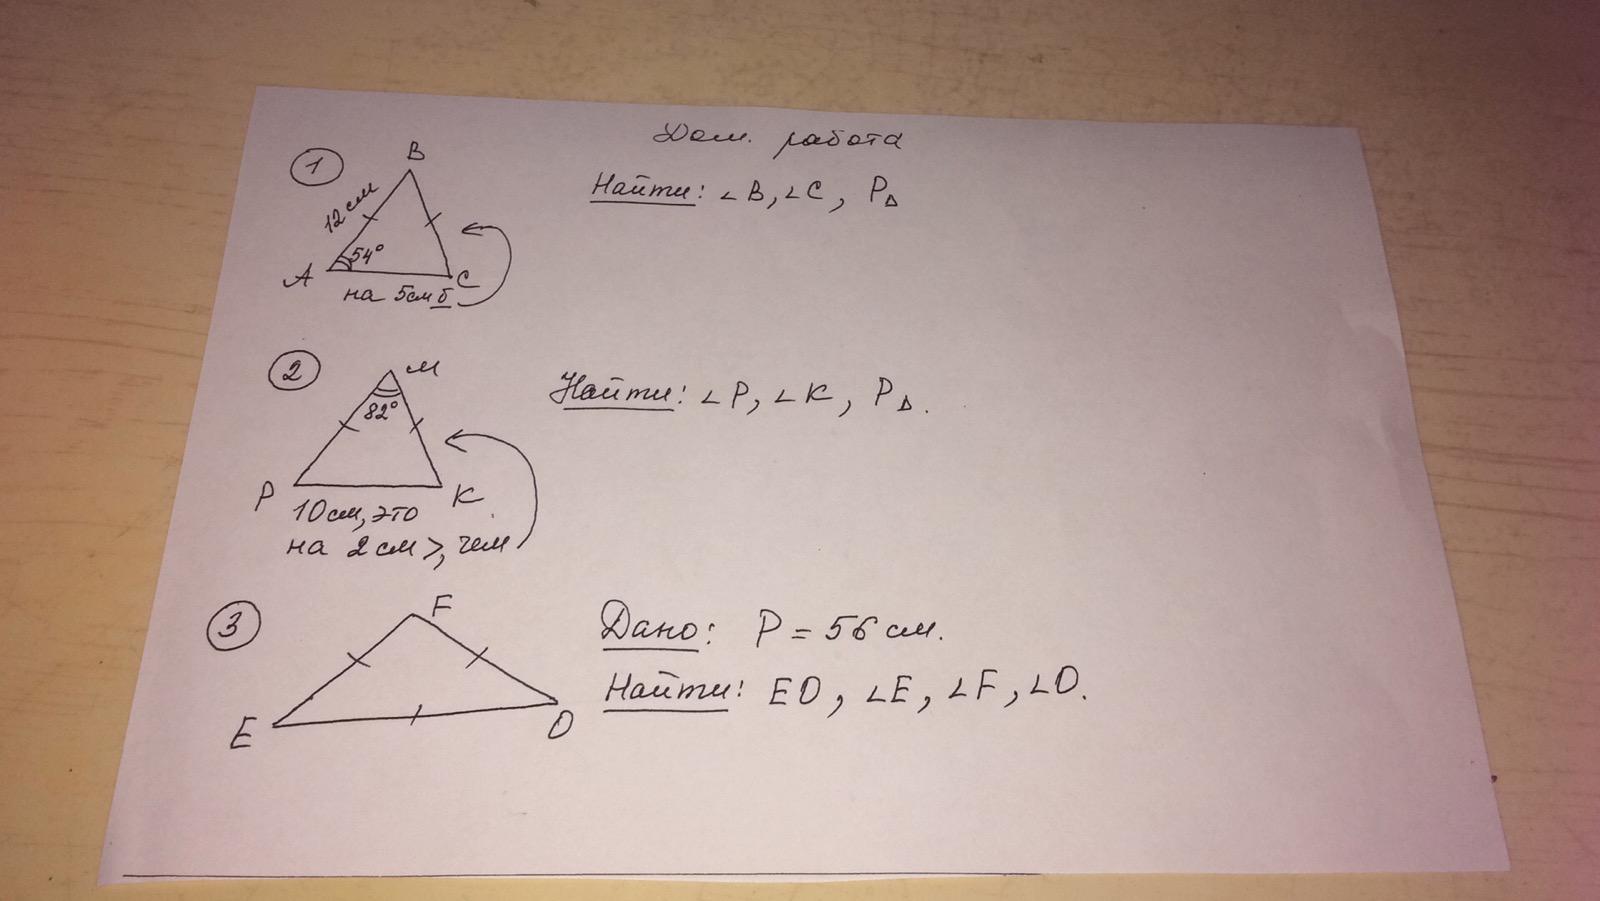 Дом. работа
1
B
12 см
54°
A
C
на 5см б
Найти: ∠B, ∠C, P△
2
M
82°
P
K
10см, это
на 2 см >, чем
Найти: ∠P, ∠K, P△.
3
F
E
O
Дано: P = 56 см.
Найти: EO, ∠E, ∠F, ∠O.